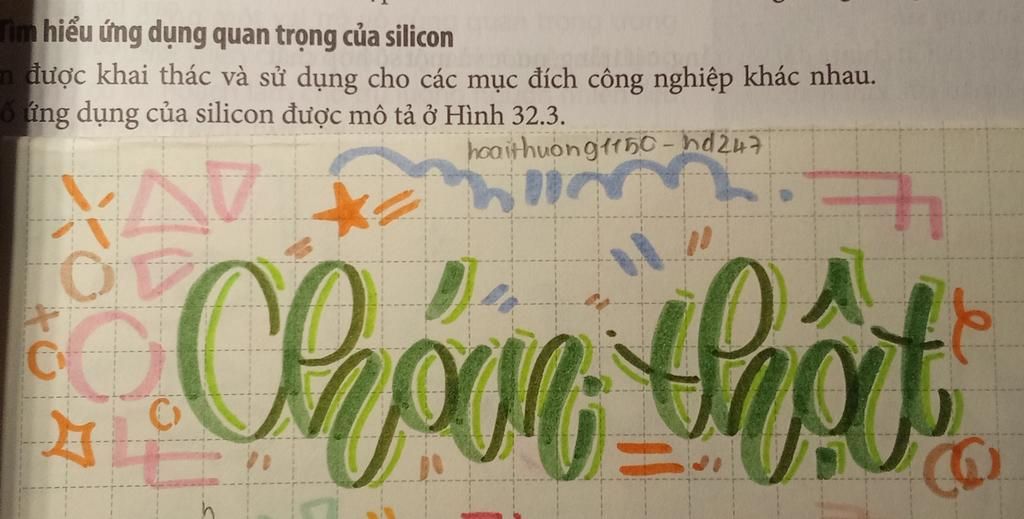 Tìm hiểu ứng dụng quan trọng của silicon
được khai thác và sử dụng cho các mục đích công nghiệp khác nhau.
ứng dụng của silicon được mô tả ở Hình 32.3.
hoaithuong1150 - hd247
Chán thật